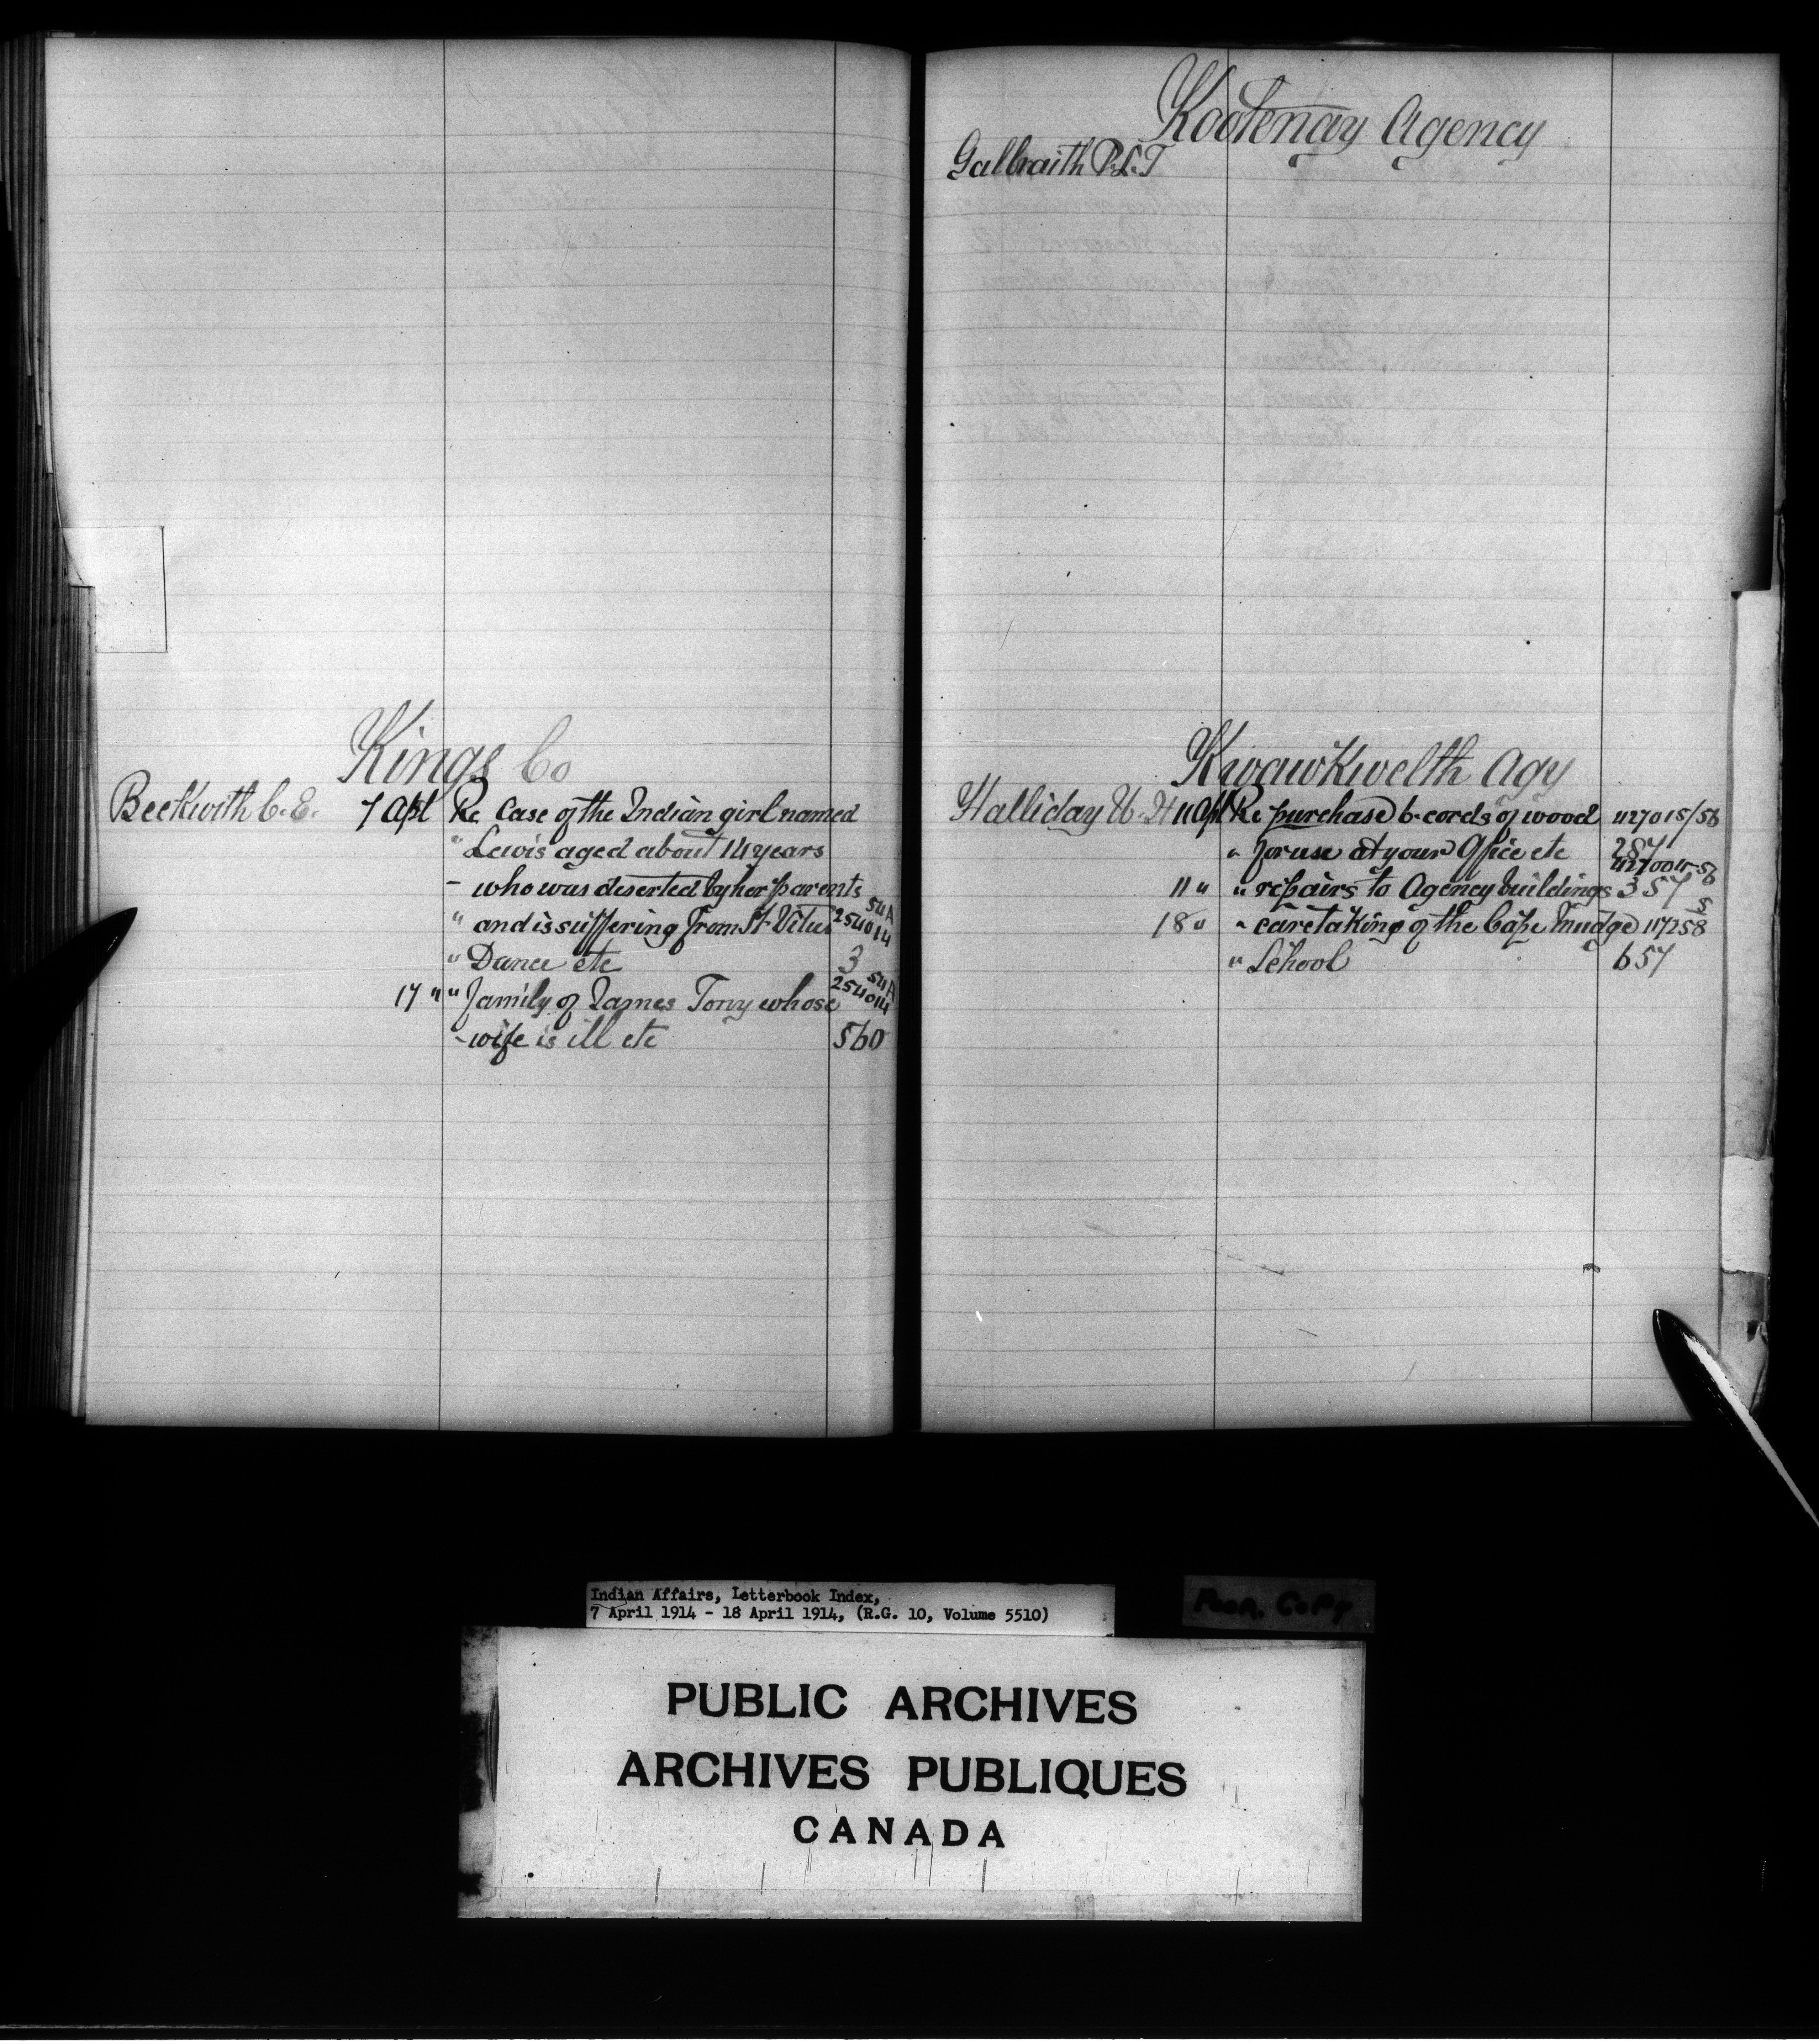 Kings Co
Beckwith C. E. 7 Apl Re Case of the Indian girl named
" Lewis aged about 14 years
" who was deserted by her parents
" and is suffering from St. Vitus 254014 54A
" Dance etc 3
17 " " family of James Tony whose 254014 54A
" wife is ill etc 560
Kootenay Agency
Galbraith R.L.T
Kwawkwelth Agy
Halliday W. H 11 Apl Re purchase 6 cords of wood 427015/56
" for use at your Office etc 287
11 " " repairs to Agency buildings 357
18 " " caretaking of the Cape Mudge 117258
" School 657
Indian Affairs, Letterbook Index,
7 April 1914 - 18 April 1914, (R.G. 10, Volume 5510)
Poor Copy
PUBLIC ARCHIVES
ARCHIVES PUBLIQUES
CANADA